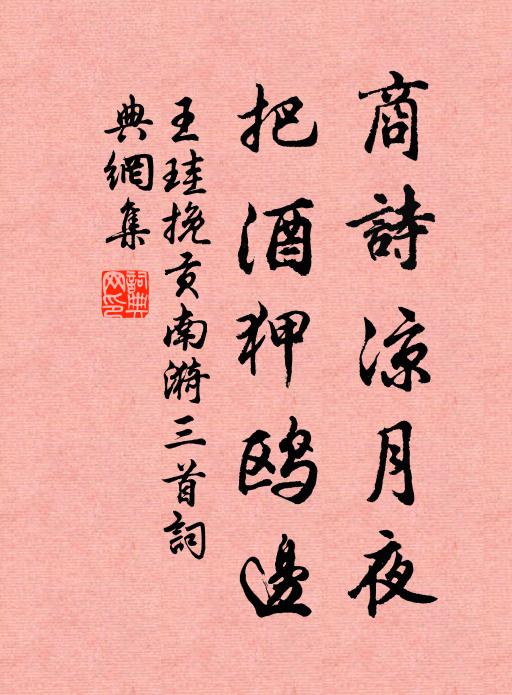 商詩涼月夜
把酒狎鸥邊
王珪挽贡南漪三首詞
典網集
詞典网印